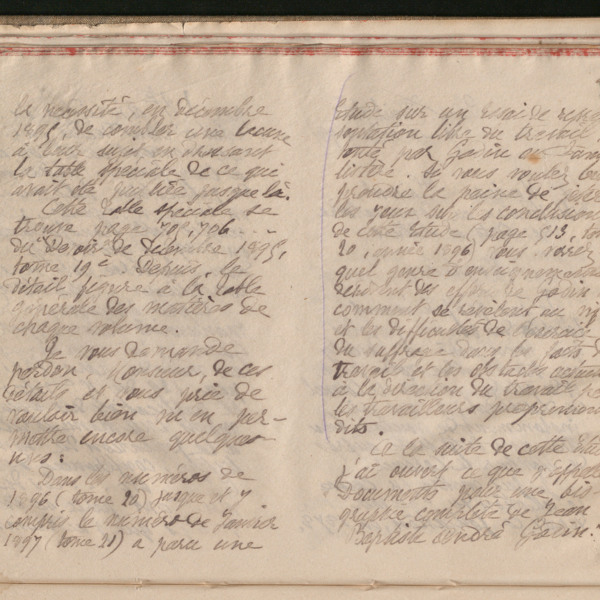 la nécessité, en décembre
1895, de combler une lacune
à leur sujet en dressant
la table spéciale de ce qui
avait été publié jusque là.
Cette table spéciale se
trouve page 705, 706 ....
du Devoir de décembre 1895,
tome 19e. Depuis, le
détail figure à la table
générale des matières de
chaque volume.
Je vous demande
pardon, Monsieur, de ces
détails et vous prie de
vouloir bien m'en per-
mettre encore quelques-
uns :
Dans les numéros de
1896 (tome 20) jusque et y
compris le numéro de Janvier
1897 (tome 21) a paru une
Etude sur un Essai de
sentation libre du travail
tenté par Godin au
listère. Si vous voulez
prendre la peine de
les yeux sur les conclusions
de cette Etude (page 513,
20, année 1896) vous verrez
quel genre d'enseignements
des efforts de Godin
comment se révèlent
et les difficultés de
du suffrage dans les
travail et les obstacles
à la direction du travail
les travailleurs proprement
dits.
A la suite de cette
j'ai ouvert ce que
Documents pour une bio
graphie complète de Jean
Baptiste André Godin.